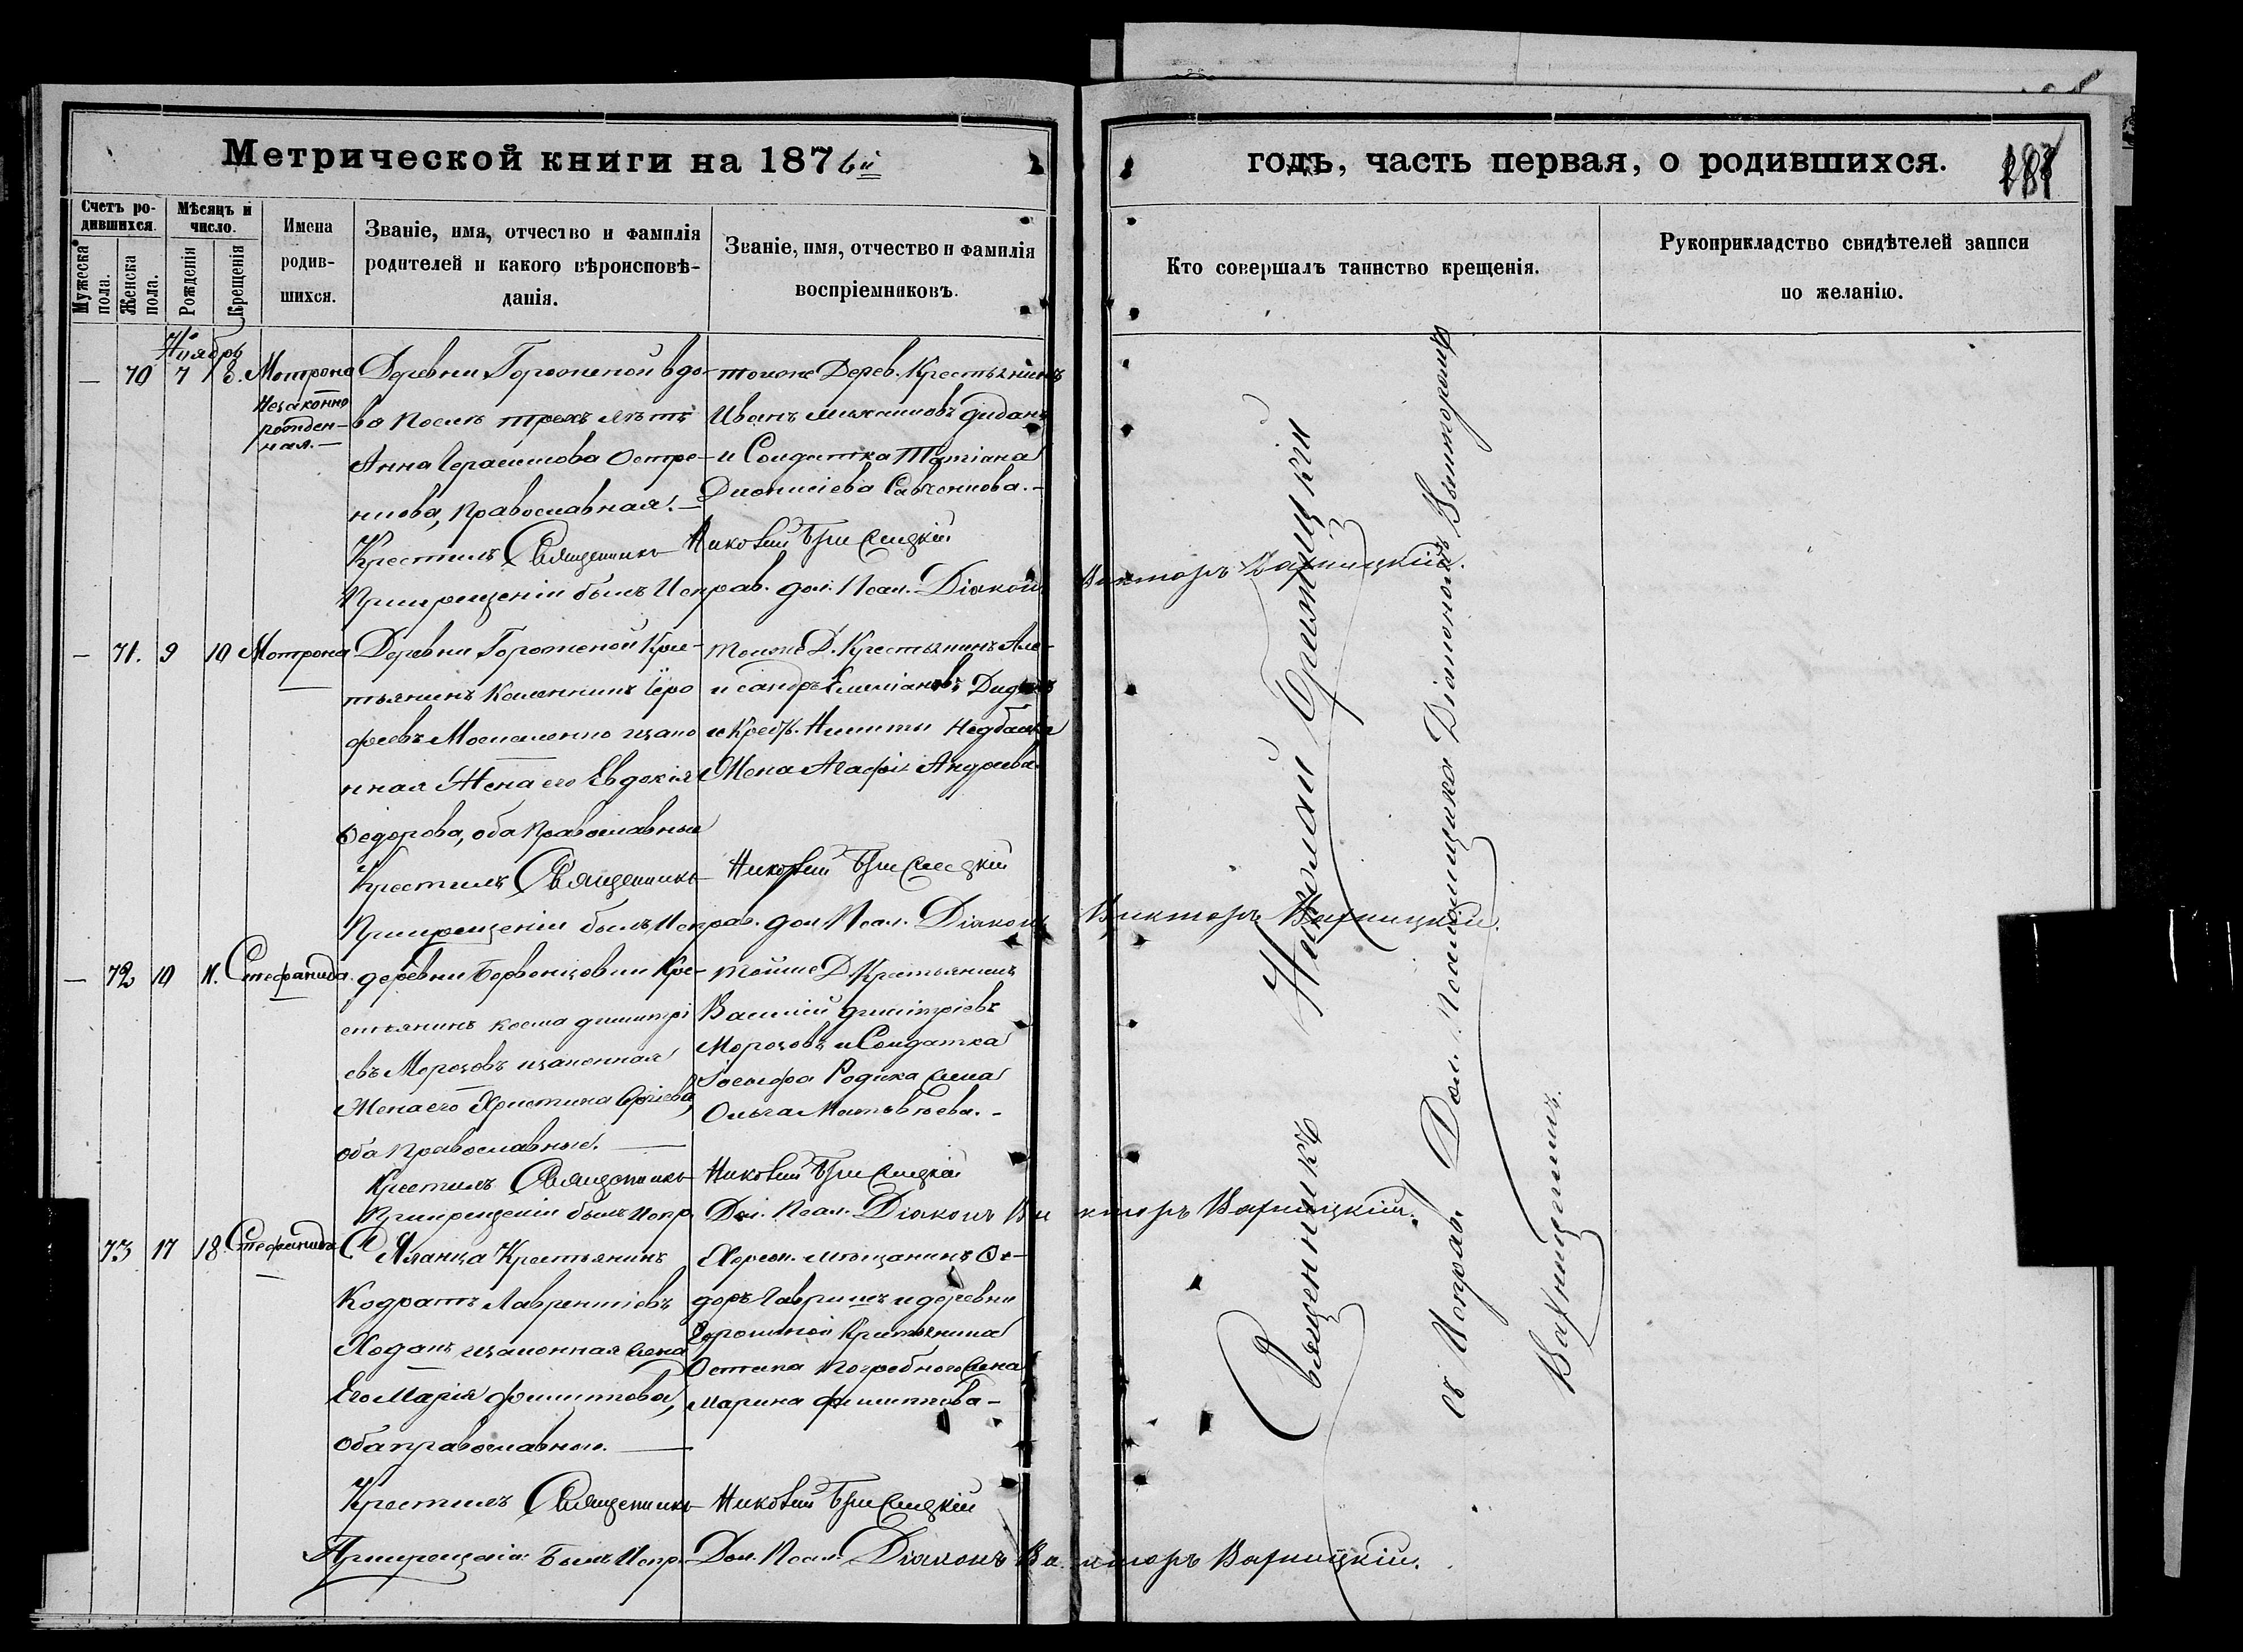 Метрической книги на 1876й
годъ, часть первая, о родившихся.
Счетъ родившихся.
Мужеска пола.
Женска пола.
Мѣсяцъ и число.
Рожденія
Крещенія
Имена родившихся.
Званіе, имя, отчество и фамилія
родителей и какого вѣроисповѣ-
данія.
Званіе, имя, отчество и фамилія
воспріемниковъ.
Кто совершалъ таинство крещенія.
Рукоприкладство свидѣтелей записи
по желанію.
Ноябрь
— 70 7 8. Мотрона
Незаконно
рожден-
ная. —
Деревни Горожаной вдо-
ва после трехъ лѣтъ
Анна Герасимова
православная. —
тойже Дерев. Крестьянинъ
Иванъ Михаиловъ Диданъ
и Солдатка Татіана
Діонисіева Савченкова. —
Крестилъ Священникъ Николай
При крещеніи былъ Исправ. дол. Псал. Діаконъ Викторъ Варницкій.
— 71. 9 10 Мотрона
Деревни Горожаной Кре-
тьянинъ Еро
феевъ Москаленко изако
нная Жена его Евдокія
Ѳедорова, оба православные
тойже Д. Крестьянинъ Але-
ксандръ Емиліановъ
и Крест. Никиты Недбайла
Жена Агафія Андреева.
Крестилъ Священникъ Николай
При крещеніи былъ Исправ. дол Псал. Діаконъ Викторъ Варницкій.
— 72 10 11. Стефанида.
деревни Кре-
стьянинъ Косма Димитрі
евъ Морозовъ изаконная
Жена его Христина
оба православные. —
тойже Д. Крестьянинъ
Василій Димитріевъ
Морозовъ и Солдатка
Іосифа Родика жена
Ольга Матвѣева. —
Крестилъ Священникъ Николай
При крещеніи былъ Испр. Дол. Псал. Діаконъ Викторъ Варницкій.
73 17 18 Стефанида
С. Яланца Крестьянинъ
Кодратъ Лаврентіевъ
Ходакъ изаконная жена
Его Марія Филиппова,
оба православные. —
Херсон. мѣщанинъ Ѳе-
доръ и деревни
Горожаной Крестьянина
Остапа Погребного жена
Марина Филиппова —
Крестилъ Священникъ Николай
При крещеніи Былъ Испр. Дол. Псал. Діаконъ Викторъ Варницкій.
Священникъ Николай
съ Исправ. Дол. Псаломщика Діакономъ Викторомъ
Варницкимъ.